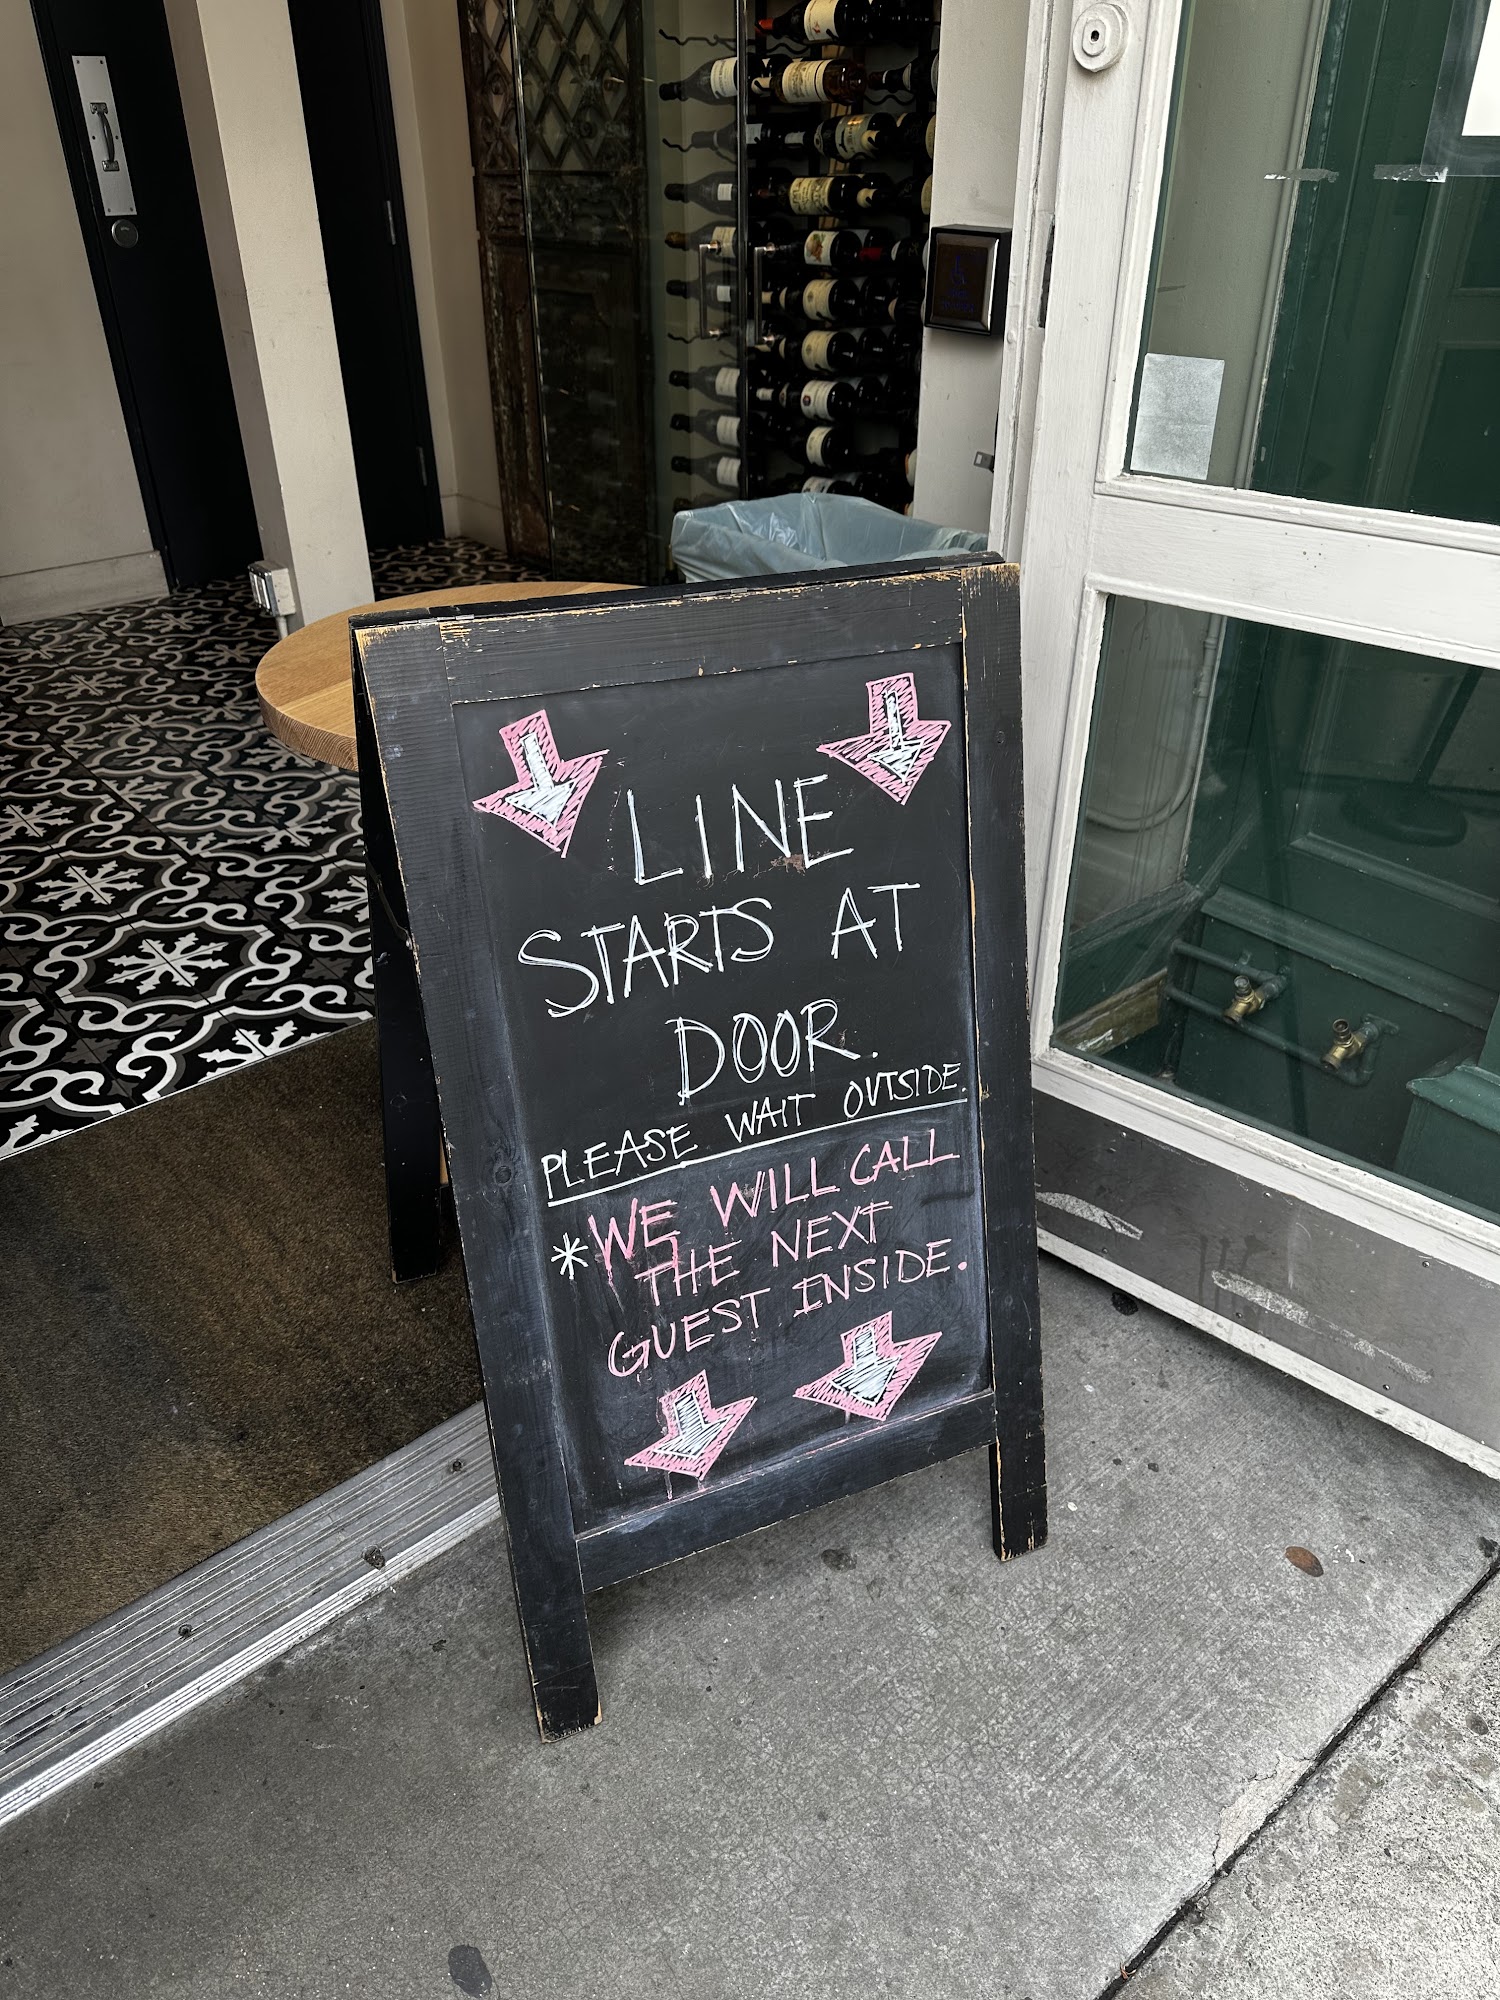 LINE
STARTS AT
DOOR.
PLEASE WAIT OUTSIDE.
*WE WILL CALL
THE NEXT
GUEST INSIDE.